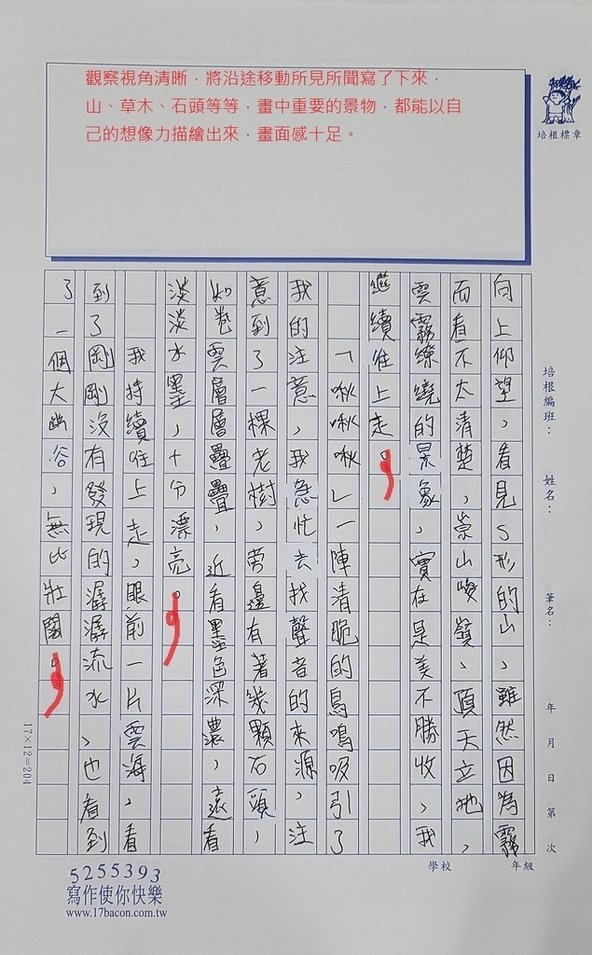 觀察視角清晰，將沿途移動所見所聞寫了下來，
山、草木、石頭等等，畫中重要的景物，都能以自
己的想像力描繪出來，畫面感十足。
培根標章
培根編班：
姓名：
筆名：
年 月 日 第 次
向上仰望，看見S形的山，雖然因為霧
而看不太清楚，崇山峻嶺、頂天立地，
雲霧繚繞的景象，實在是美不勝收，我
繼續往上走。
「啾啾啾」一陣清脆的鳥鳴吸引了
我的注意，我急忙去找聲音的來源，注
意到了一棵老樹，旁邊有著幾顆石頭，
如卷雲層層疊疊，近看墨色深濃，遠看
淡淡水墨，十分漂亮。
我持續往上走，眼前一片雲海，看
到了剛剛沒有發現的潺潺流水，也看到
了一個大幽谷，無比壯闊。
17×12=204
學校 年級
5255393
寫作使你快樂
www.17bacon.com.tw